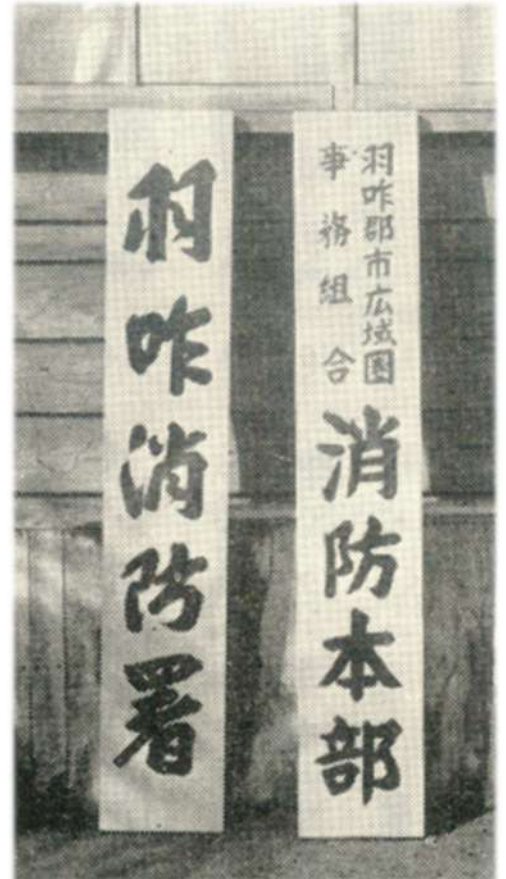 羽咋郡市広域圏
事務組合
消防本部
羽咋消防署